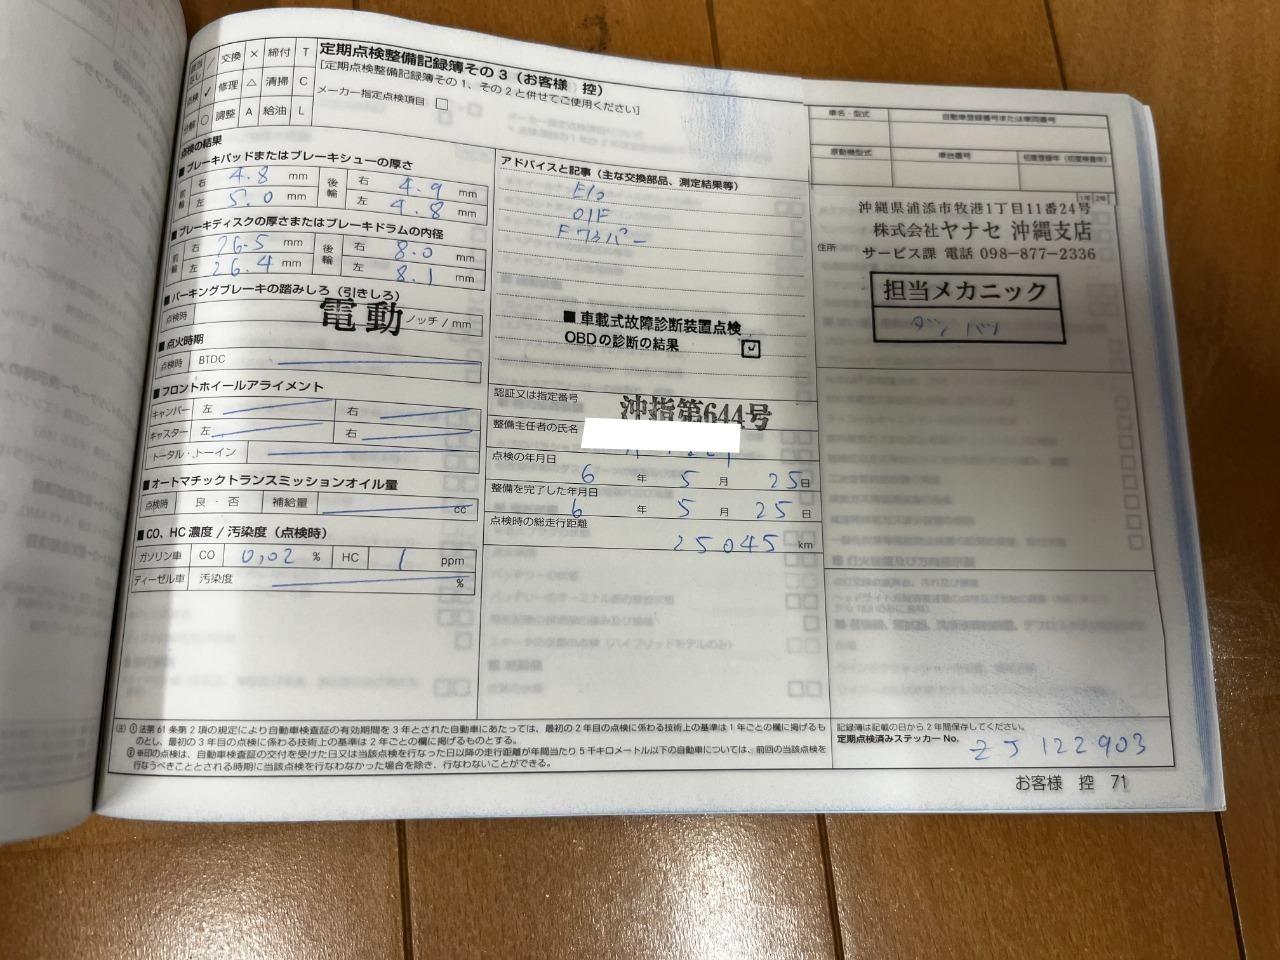 交換 × 締付 T
修理 △ 清掃 C
点検 ✓
調整 A 給油 L
分解 ○
定期点検整備記録簿その3（お客様 控）
［定期点検整備記録簿その1、その2と併せてご使用ください］
メーカー指定点検項目 □
点検の結果
■ブレーキパッドまたはブレーキシューの厚さ
前輪 右 4.8 mm 後輪 右 4.9 mm
左 5.0 mm 左 4.8 mm
■ブレーキディスクの厚さまたはブレーキドラムの内径
前輪 右 26.5 mm 後輪 右 8.0 mm
左 26.4 mm 左 8.1 mm
■パーキングブレーキの踏みしろ（引きしろ）
点検時 電動 ノッチ / mm
■点火時期
点検時 BTDC
■フロントホイールアライメント
キャンバー 左 右
キャスター 左 右
トータル・トーイン
■オートマチックトランスミッションオイル量
点検時 良・否 補給量 cc
■CO、HC 濃度 / 汚染度（点検時）
ガソリン車 CO 0,02 % HC 1 ppm
ディーゼル車 汚染度 %
アドバイスと記事（主な交換部品、測定結果等）
E/o
O/F
Fワイパー
■車載式故障診断装置点検
OBDの診断の結果 ☑
認証又は指定番号 沖指第644号
整備主任者の氏名
点検の年月日 6 年 5 月 25 日
整備を完了した年月日 6 年 5 月 25 日
点検時の総走行距離 25045 km
車名・型式 自動車登録番号または車両番号
原動機型式 車台番号 初度登録年（初度検査年）
1年 2年
住所
沖縄県浦添市牧港1丁目11番24号
株式会社ヤナセ 沖縄支店
サービス課 電話 098-877-2336
担当メカニック
(注) ① 法第61条第2項の規定により自動車検査証の有効期間を3年とされた自動車にあたっては、最初の2年目の点検に係わる技術上の基準は1年ごとの欄に掲げるも
のとし、最初の3年目の点検に係わる技術上の基準は2年ごとの欄に掲げるものとする。
② ※印の点検は、自動車検査証の交付を受けた日又は当該点検を行なった日以降の走行距離が年間当たり5千キロメートル以下の自動車については、前回の当該点検を
行なうべきこととされる時期に当該点検を行なわなかった場合を除き、行なわないことができる。
記録簿は記載の日から2年間保存してください。
定期点検済みステッカーNo. ZJ 122903
お客様 控 71